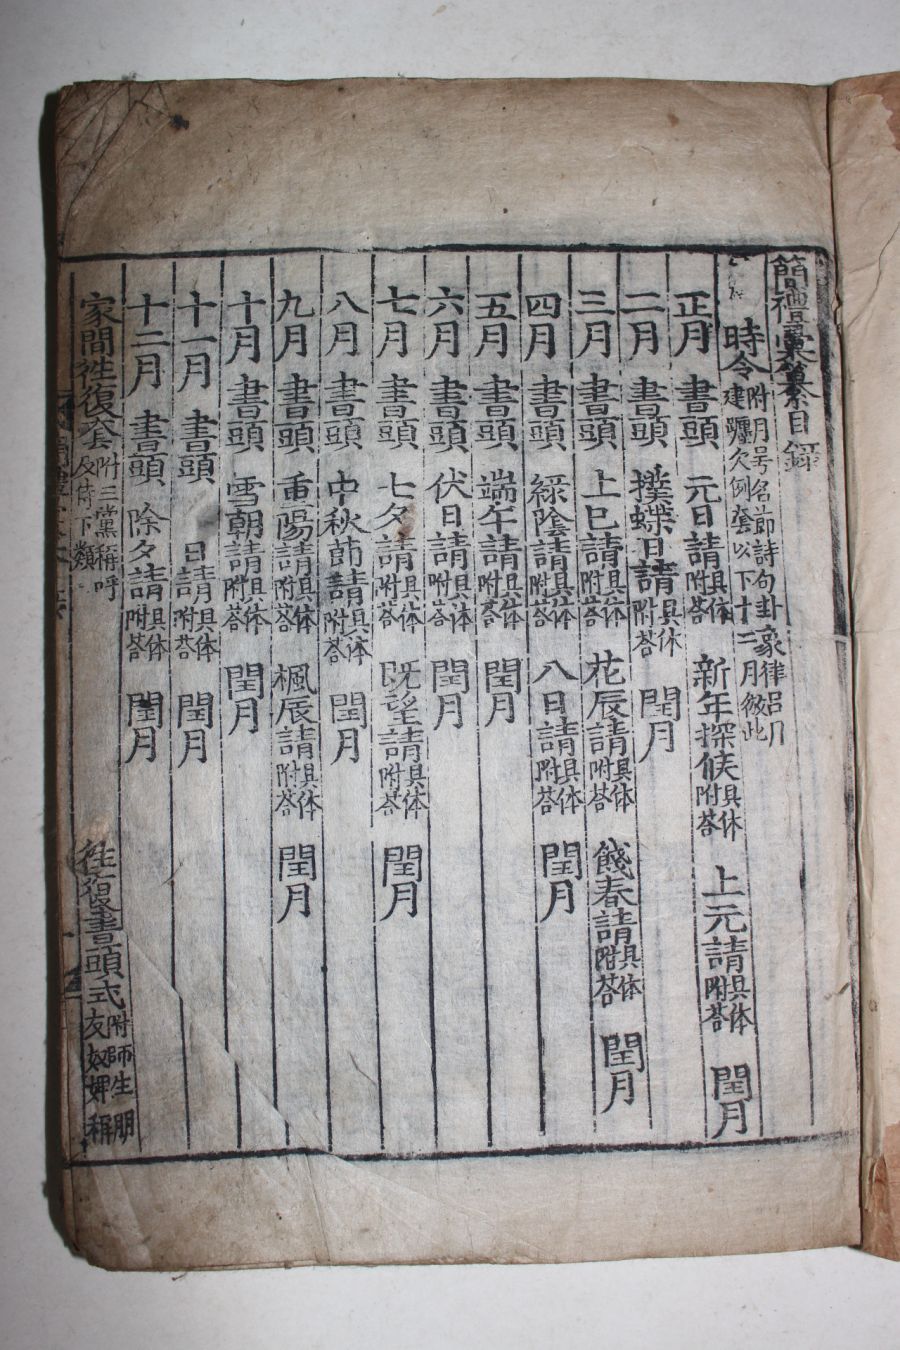 簡禮彙纂目錄
時令 附月号名節詩句卦象律呂月建躔次例套以下十二月倣此
正月 書頭 元日請 附具答体 新年探候 附具答体 上元請 附具答体 閏月
二月 書頭 撲蝶日請 附具答体 閏月
三月 書頭 上巳請 附具答体 花辰請 附具答体 餞春請 附具答体 閏月
四月 書頭 綠陰請 附具答体 八日請 附具答体 閏月
五月 書頭 端午請 附具答体 閏月
六月 書頭 伏日請 附具答体 閏月
七月 書頭 七夕請 附具答体 旣望請 附具答体 閏月
八月 書頭 中秋節請 附具答体 閏月
九月 書頭 重陽請 附具答体 楓辰請 附具答体 閏月
十月 書頭 雪朝請 附具答体 閏月
十一月 書頭 日請 附具答体 閏月
十二月 書頭 除夕請 附具答体 閏月
家間徃復套 附三黨稱呼及侍下類 徃復書頭式 附師生朋友奴婢稱